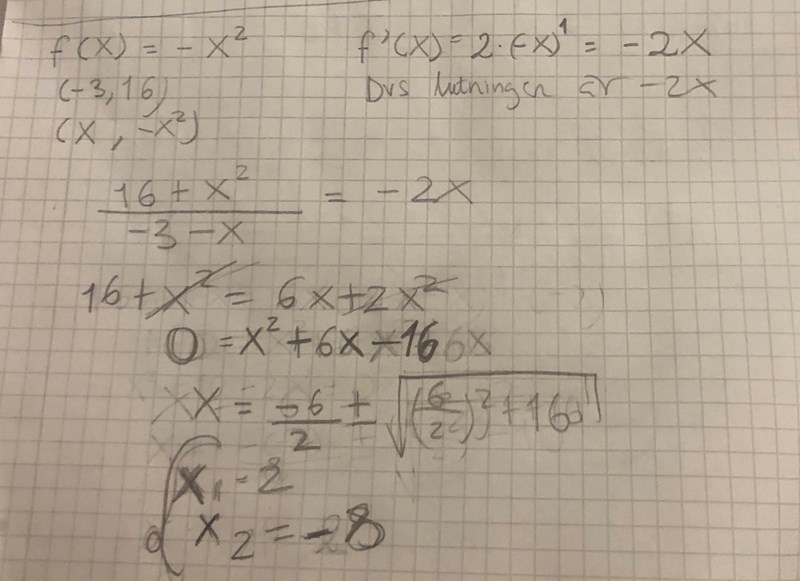 f(x) = -x² f'(x) = 2·(-x)¹ = -2x
(-3,16) Dvs lutningen är -2x
(x, -x²)
16 + x² / -3 - x = -2x
16 + x² = 6x + 2x²
0 = x² + 6x - 16
x = -6/2 ± √((6/2)² + 16)
x₁ = 2
x₂ = -8